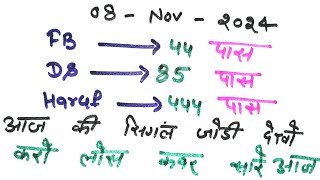 08 - Nov - 2024
FB → 44 पास
DS → 85 पास
Haruf → 444 पास
आज की सिगंल जोडी देखो
करो लोस कवर सारे आज